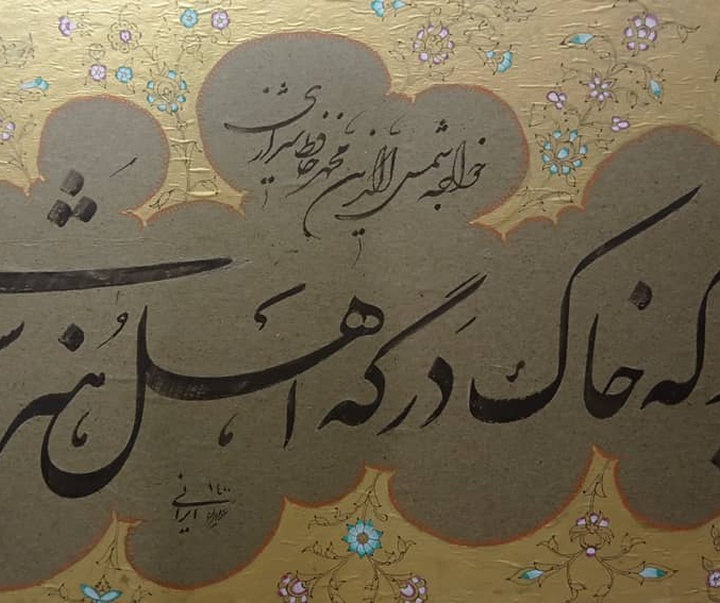 خواجه شمس الدین محمد حافظ شیرازی
که خاک درگه اهل هنر
۱۴۰۰
ایرانی